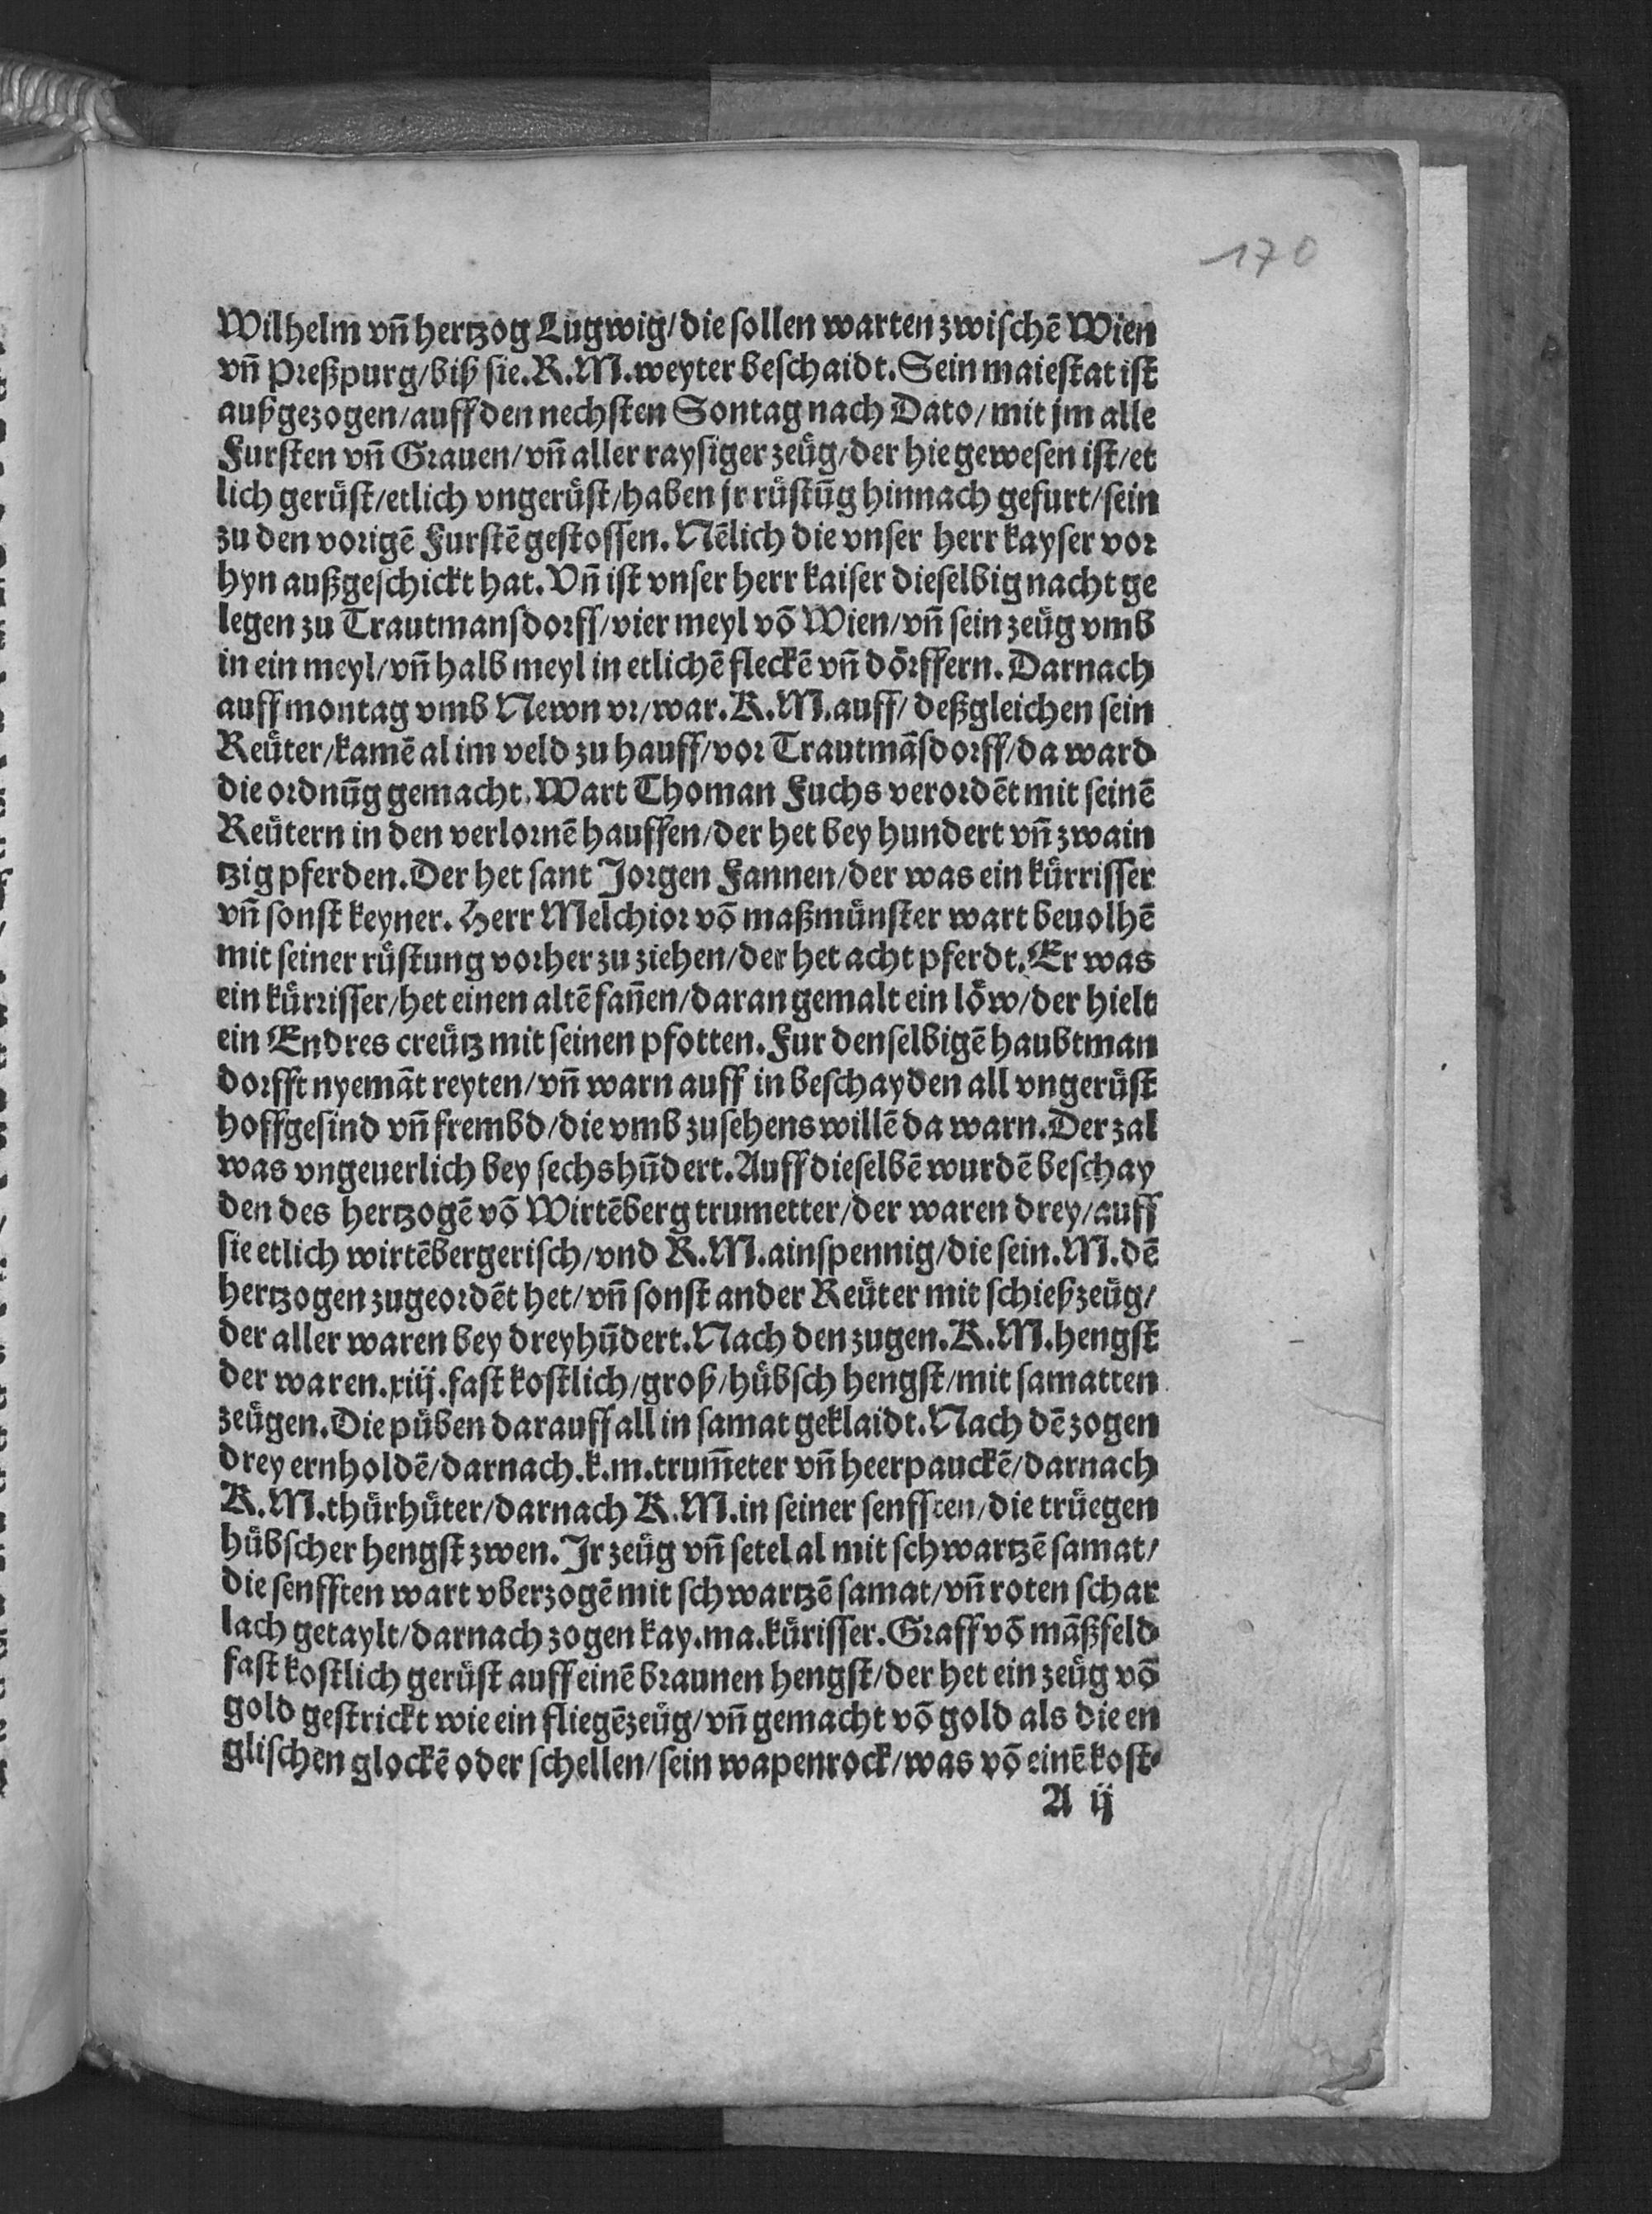 170
Wilhelm vñ hertzog Lugwig/die sollen warten zwischē Wien
vñ Preßpurg/biß sie.K.M.weyter beschaidt.Sein maiestat ist
außgezogen/auff den nechsten Sontag nach Dato/mit jm alle
Fursten vñ Grauen/vñ aller raysiger zeüg/der hie gewesen ist/et
lich gerüst/etlich vngerüst/haben jr rüstūg hinnach gefurt/sein
zu den vorigē Furstē gestossen. Nēlich die vnser herr kayser vor
hyn außgeschickt hat. Vñ ist vnser herr kaiser dieselbig nacht ge
legen zu Trautmansdorff/vier meyl vō Wien/vñ sein zeüg vmb
in ein meyl/vñ halb meyl in etlichē fleckē vñ dörffern. Darnach
auff montag vmb Newn vr/war.K.M.auff/deßgleichen sein
Reüter/kamē al im veld zu hauff/vor Trautmāsdorff/da ward
die ordnūg gemacht.Wart Thoman Fuchs verordēt mit seinē
Reütern in den verlornē hauffen/der het bey hundert vñ zwain
tzig pferden.Der het sant Jorgen Fannen/der was ein kürrisser
vñ sonst keyner. Herr Melchior vō maßmünster wart beuolhē
mit seiner rüstung vorher zu ziehen/der het acht pferdt.Er was
ein kürrisser/het einen altē fañen/daran gemalt ein löw/der hielt
ein Endres creütz mit seinen pfotten.Fur denselbigē haubtman
dorfft nyemāt reyten/vñ warn auff in beschayden all vngerüst
hoffgesind vñ frembd/die vmb zusehens willē da warn.Der zal
was vngeuerlich bey sechshūdert.Auff dieselbē wurdē beschay
den des hertzogē vō Wirtēberg trumetter/der waren drey/auff
sie etlich wirtēbergerisch/vnd K.M.ainspennig/die sein.M.dē
hertzogen zugeordēt het/vñ sonst ander Reüter mit schießzeüg/
der aller waren bey dreyhūdert.Nach den zugen.K.M.hengst
der waren.xiij.fast kostlich/groß/hübsch hengst/mit samatten
zeügen.Die püben darauff all in samat geklaidt.Nach dē zogen
drey ernholdē/darnach.k.m.trum̄eter vñ heerpauckē/darnach
K.M.thürhüter/darnach K.M.in seiner senfften/die trüegen
hübscher hengst zwen. Jr zeüg vñ setel al mit schwartzē samat/
die senfften wart vberzogē mit schwartzē samat/vñ roten schar
lach getaylt/darnach zogen kay.ma.kürisser.Graff vō māßfeld
fast kostlich gerüst auff einē braunen hengst/der het ein zeüg vō
gold gestrickt wie ein fliegēzeüg/vñ gemacht vō gold als die en
glischen glockē oder schellen/sein wapenrock/was vō einē kost-
A ij